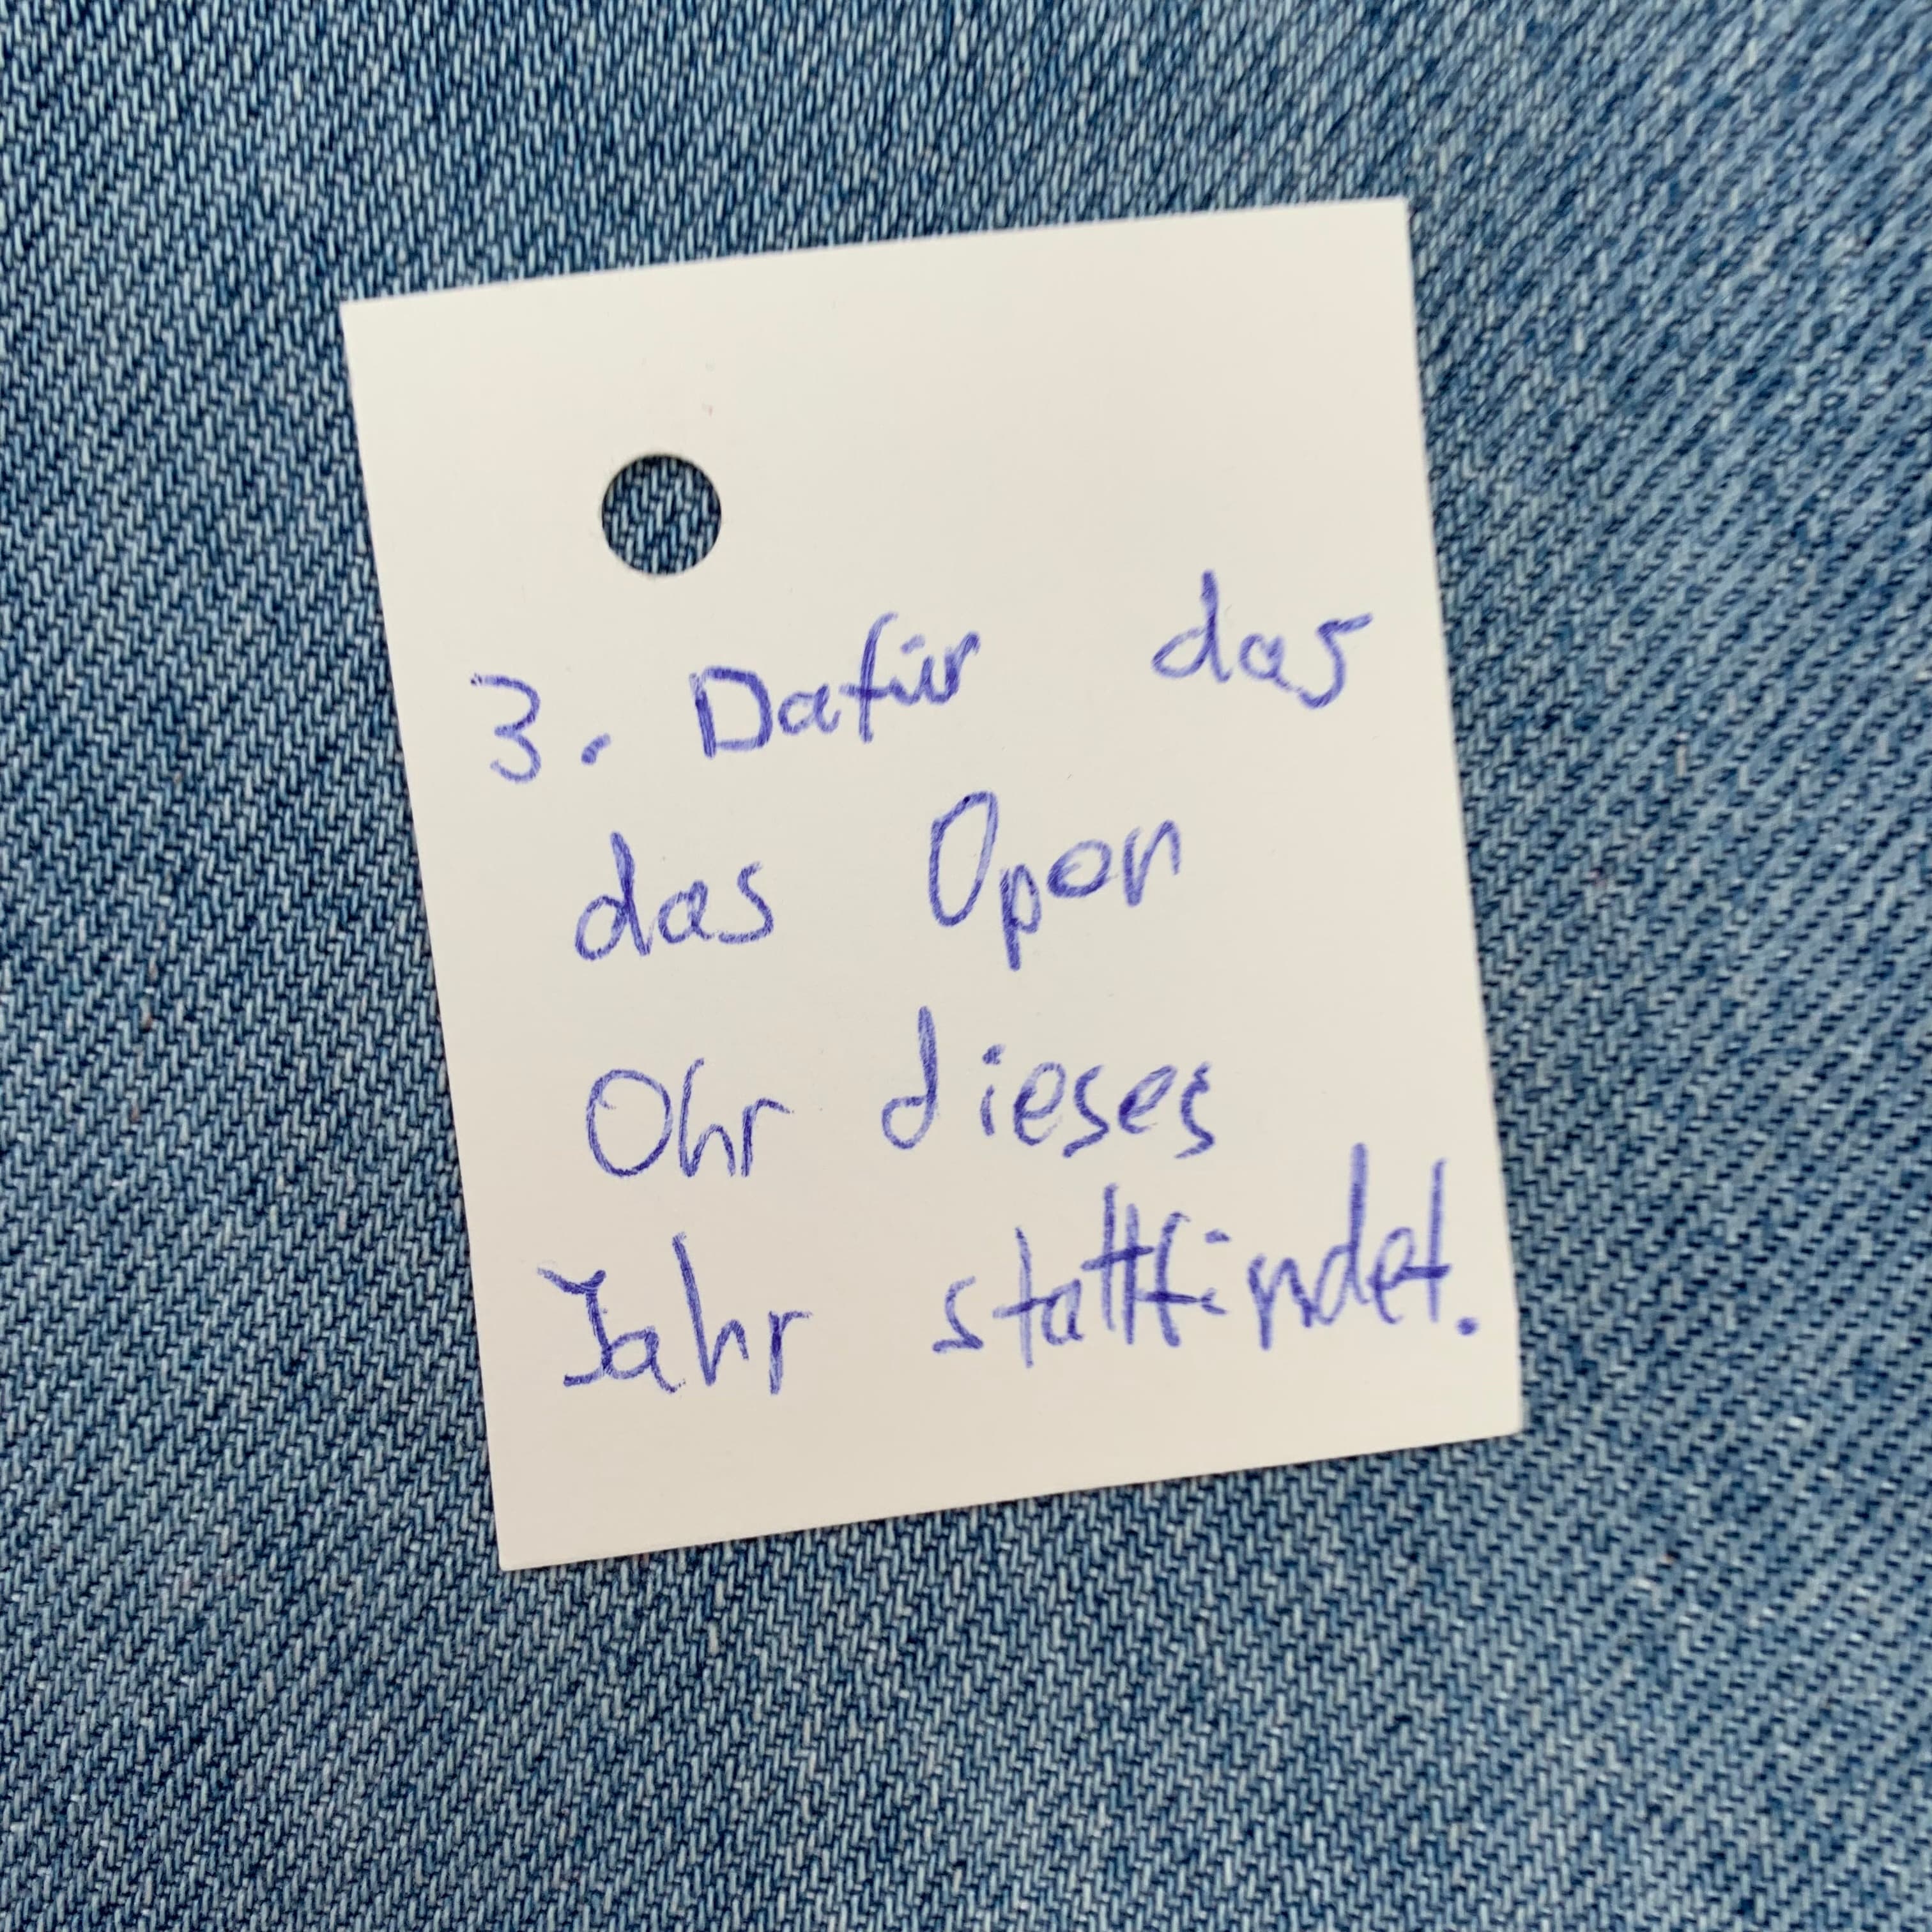 3. Dafür das
das Open
Ohr dieses
Jahr stattfindet.